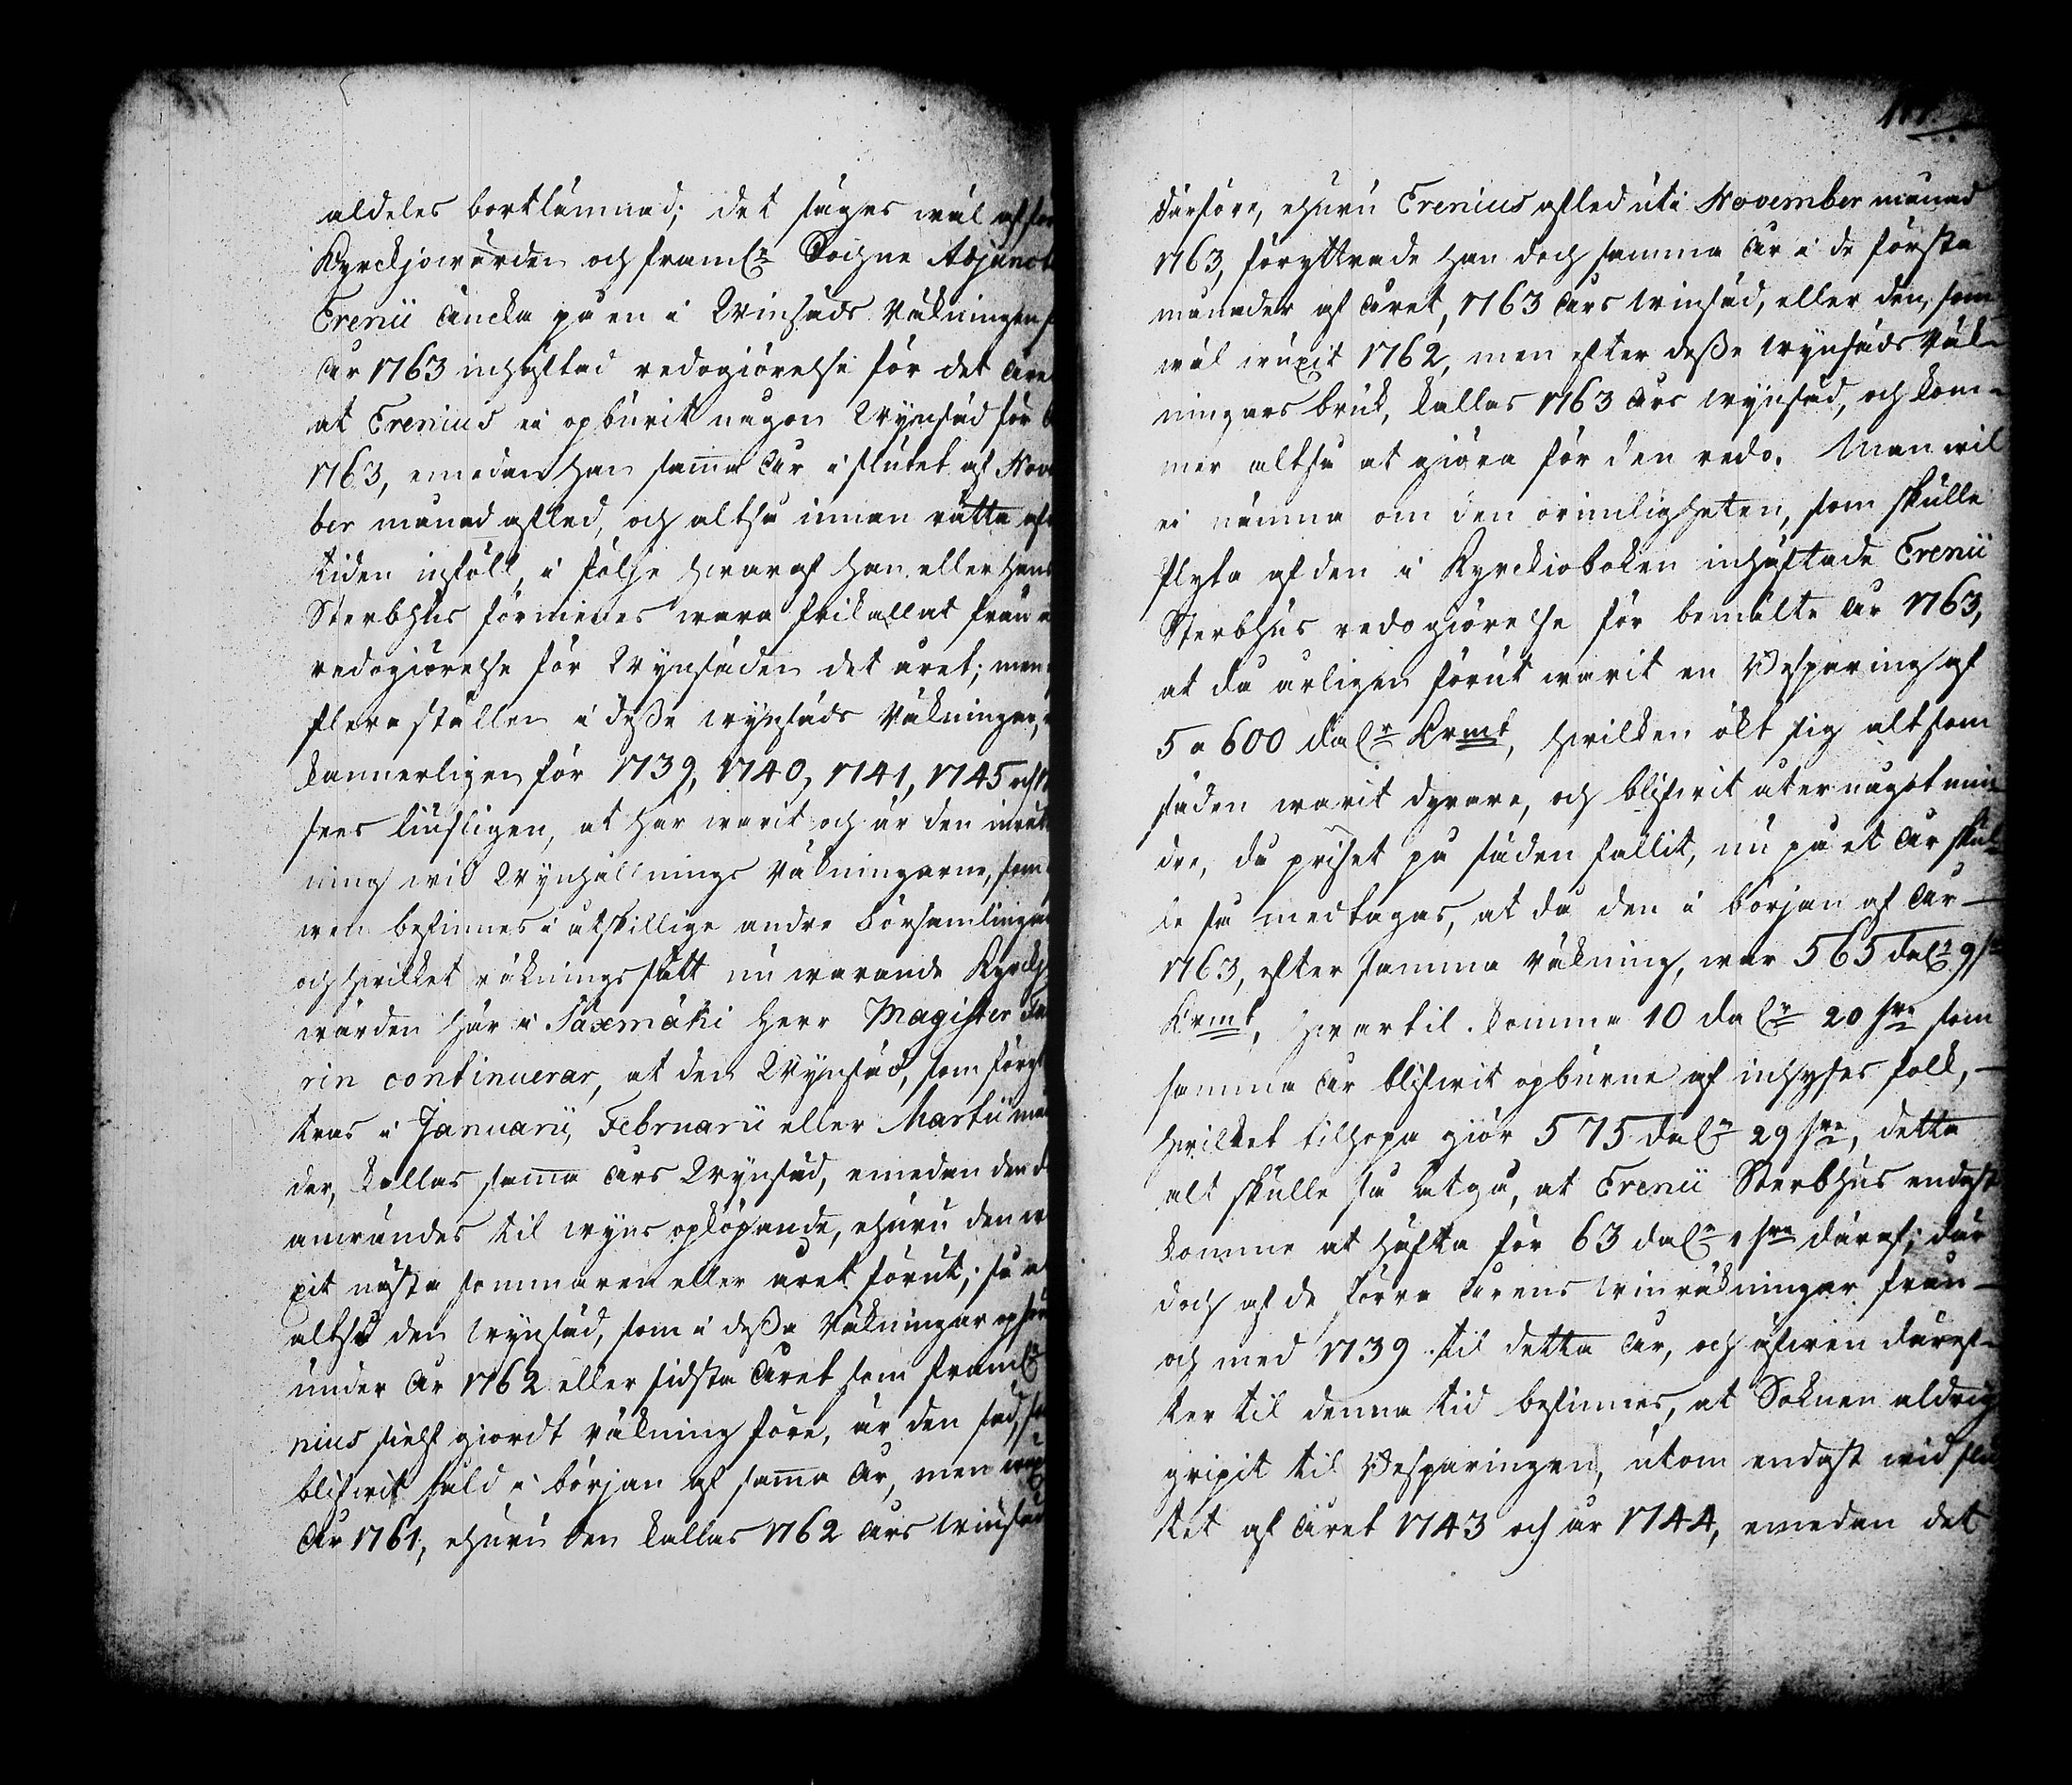 aldeles bortlämnad; det säges wäl af
Kyrckjowärden och framl:n Sochne Adjunct
Erenii Äncka på en i Winsäds Räkningen
År 1763 inhäftad redogiörelse för det Året
at Erenius ei opburit någon Wynsäd för
1763, emedan han sama År i slutet af Nov
ber månad afled, och altså innan rätta
tiden inföll, i följe hwaraf han eller hans
Sterbhus förmenes wara frikallat från
redogiörelse för Wynsäden det året; men
flera ställen i deße wynsäds Räkningar,
kannerligen för 1739, 1740, 1741, 1745 och
sees liusligen, at här warit och är den inrät
ning wid Wynhållnings Räkningarne, som
wen befinnes i åtskillige andre Församlingar
och hwilket räknings sätt nu warande Kyrckj
wärden här i Säxmäki Herr Magister
rin continuerar, at den Wynsäd, som föryt
tras i Januarii, Februarii eller Martii må
der, kallas sama Års Wynsäd, emedan den d
anwändes til wyns opköpande, ehuru den w
xit nästa sommaren eller året förut; så är
altså den Wynsäd, som i deßa Räkningar opföres
under År 1762 eller sidsta Året som framl:n
nius sielf giordt räkning före, är den säd,
blifwit såld i början af sama År, men wuxit
År 1761, ehuru den kallas 1762 Års winsäd
därföre, ehuru Erenius afled uti November månad
1763, föryttrade han doch samma År i de första
månader af Året, 1763 Års winsäd, eller den, som
wäl wuxit 1762, men efter deße wynsäds Räk-
ningars bruk, kallas 1763 Års wynsäd, och kom-
mer altså at giöra för den redo. Man wil
ei nämna om den orimligheten, som skulle
flyta af den i Kyrckioboken inhäftade Erenii
Sterbhus redogiörelse för bemälte År 1763,
at då årligen förut warit en Besparing af
5 a 600 dal:r Krmt, hwilken ökt sig alt som
säden warit dyrare, och blifwit åter något min-
dre, då priset på säden fallit, nu på et År skul-
le så medtagas, at då den i början af År
1763, efter samma räkning, war 565 dal:r 9
Krmt, hwartil komma 10 dal:r 20 öre som
samma År blifwit opburne af inhyses folk,
hwilket tilhopa giör 575 dal:r 29 öre, detta
alt skulle så åtgå, at Erenii Sterbhus endast
komme at häfta för 63 dal:r 1 öre däraf; där
doch af de förra Årens winräkningar från
och med 1739 til detta År, och äfwen däref-
ter til denna tid befinnes, at Soknen aldrig
gripit til Besparingen, utom endast wid slu
tet af Året 1743 och år 1744, emedan det